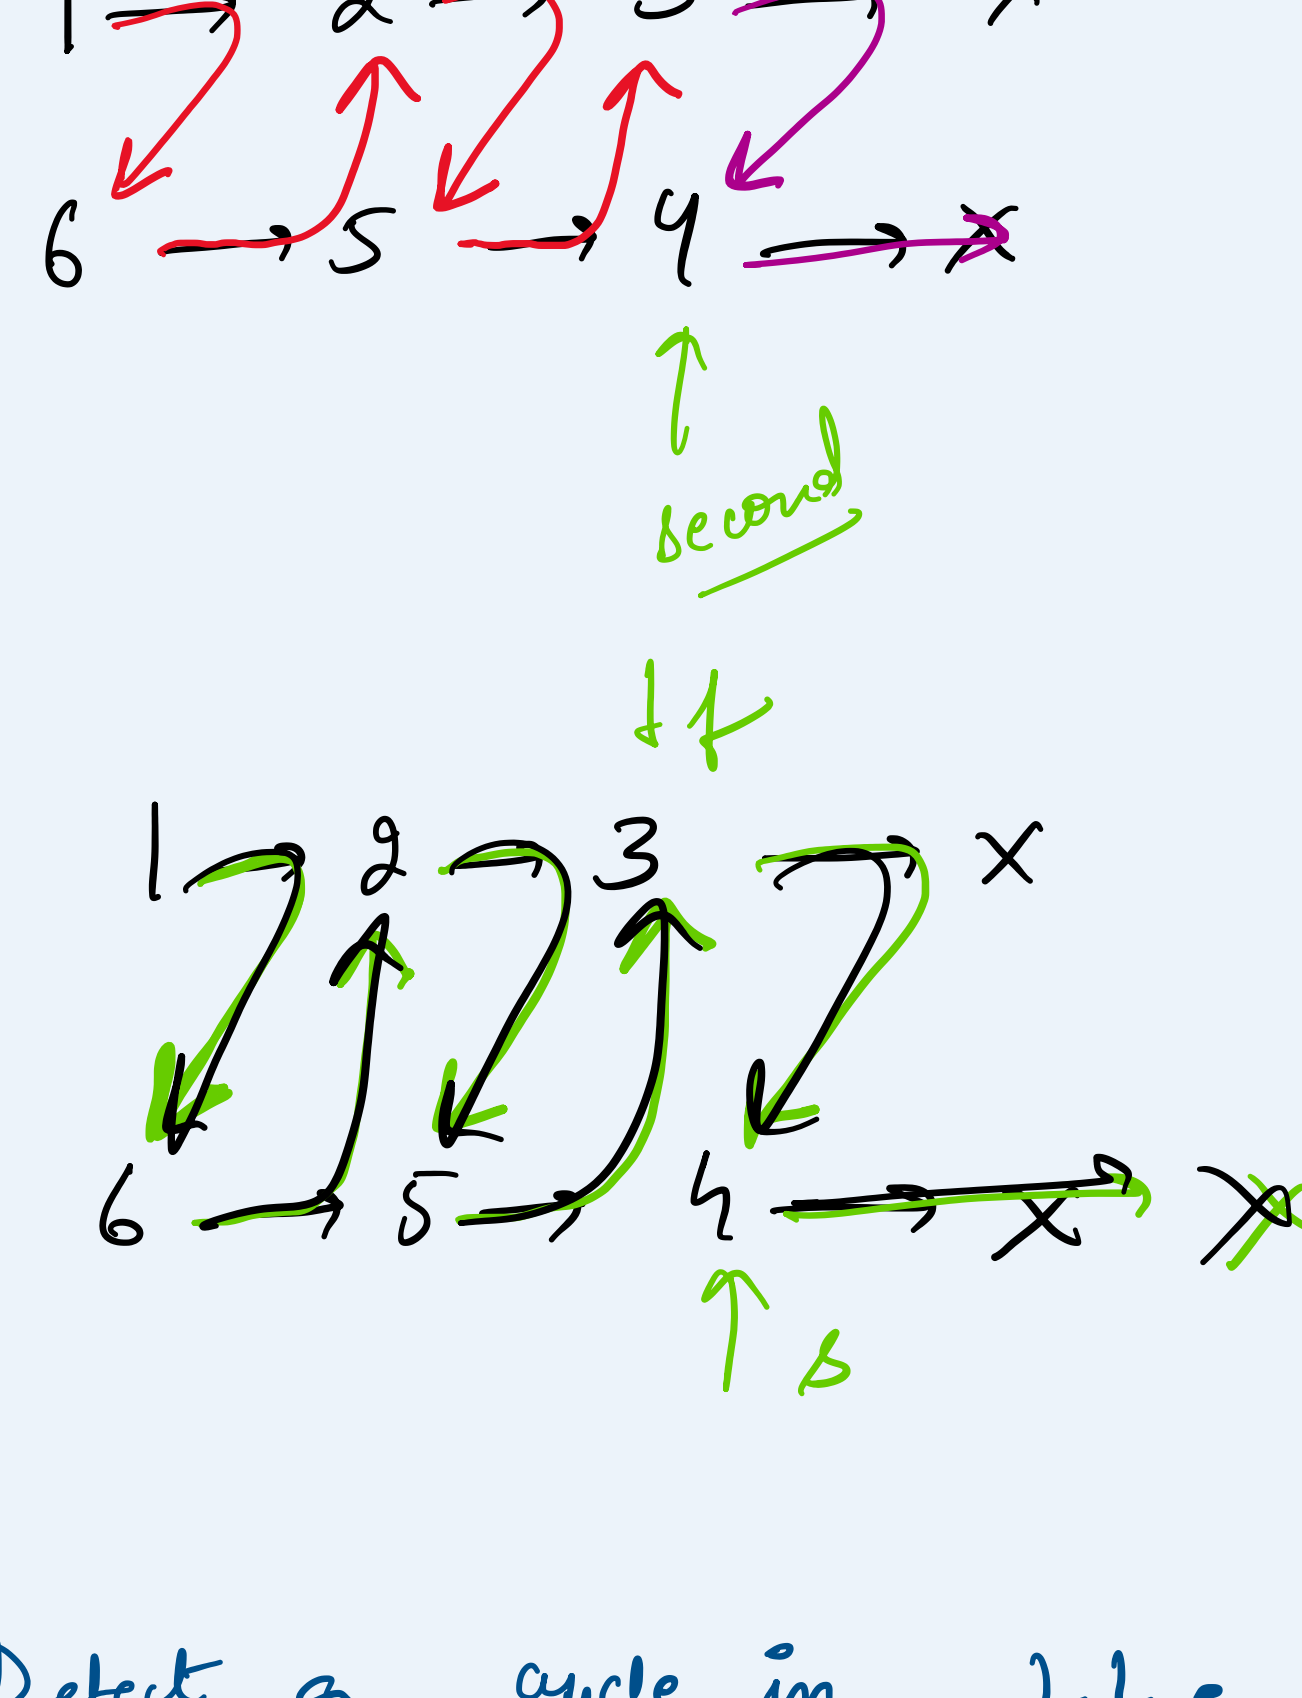 1 2 3 x
6 5 4 x
second
f
1 2 3 x
6 5 4 x x
s
Detect a cycle in